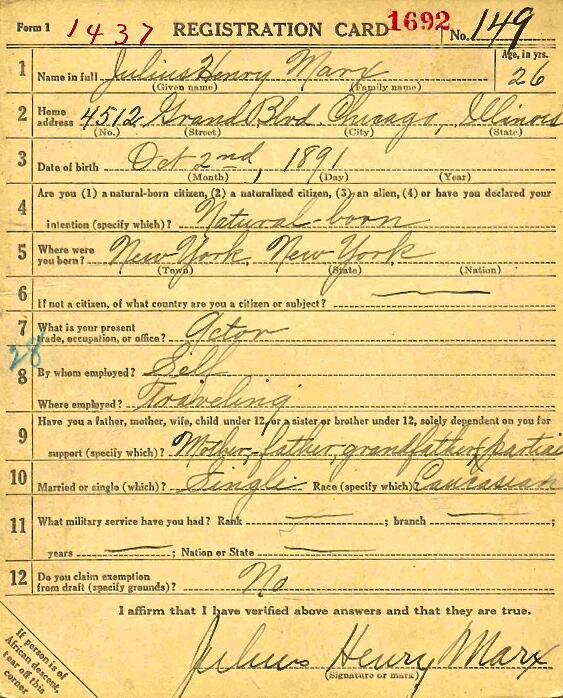 Form 1 1437 REGISTRATION CARD 1692 No. 149
1 Name in full Julius Henry Marx Age, in yrs. 26
(Given name) (Family name)
2 Home address 4512 Grand Blvd. Chicago, Illinois
(No.) (Street) (City) (State)
3 Date of birth Oct 2nd, 1891
(Month) (Day) (Year)
4 Are you (1) a natural-born citizen, (2) a naturalized citizen, (3) an alien, (4) or have you declared your
intention (specify which)? Natural-born
5 Where were you born? New York, New York
(Town) (State) (Nation)
6 If not a citizen, of what country are you a citizen or subject?
7 What is your present trade, occupation, or office? Actor
28
8 By whom employed? Self
Where employed? Traveling
9 Have you a father, mother, wife, child under 12, or a sister or brother under 12, solely dependent on you for
support (specify which)? Mother, father, grandfather (partial
10 Married or single (which)? Single Race (specify which)? Caucasian
11 What military service have you had? Rank ; branch ;
years ; Nation or State
12 Do you claim exemption from draft (specify grounds)? No
I affirm that I have verified above answers and that they are true.
Julius Henry Marx
(Signature or mark)
If person is of
African descent,
tear off this
corner.